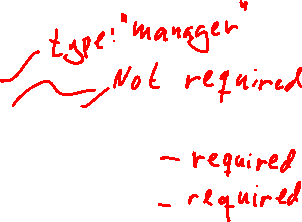 type: "manager"
Not required
- required
- required